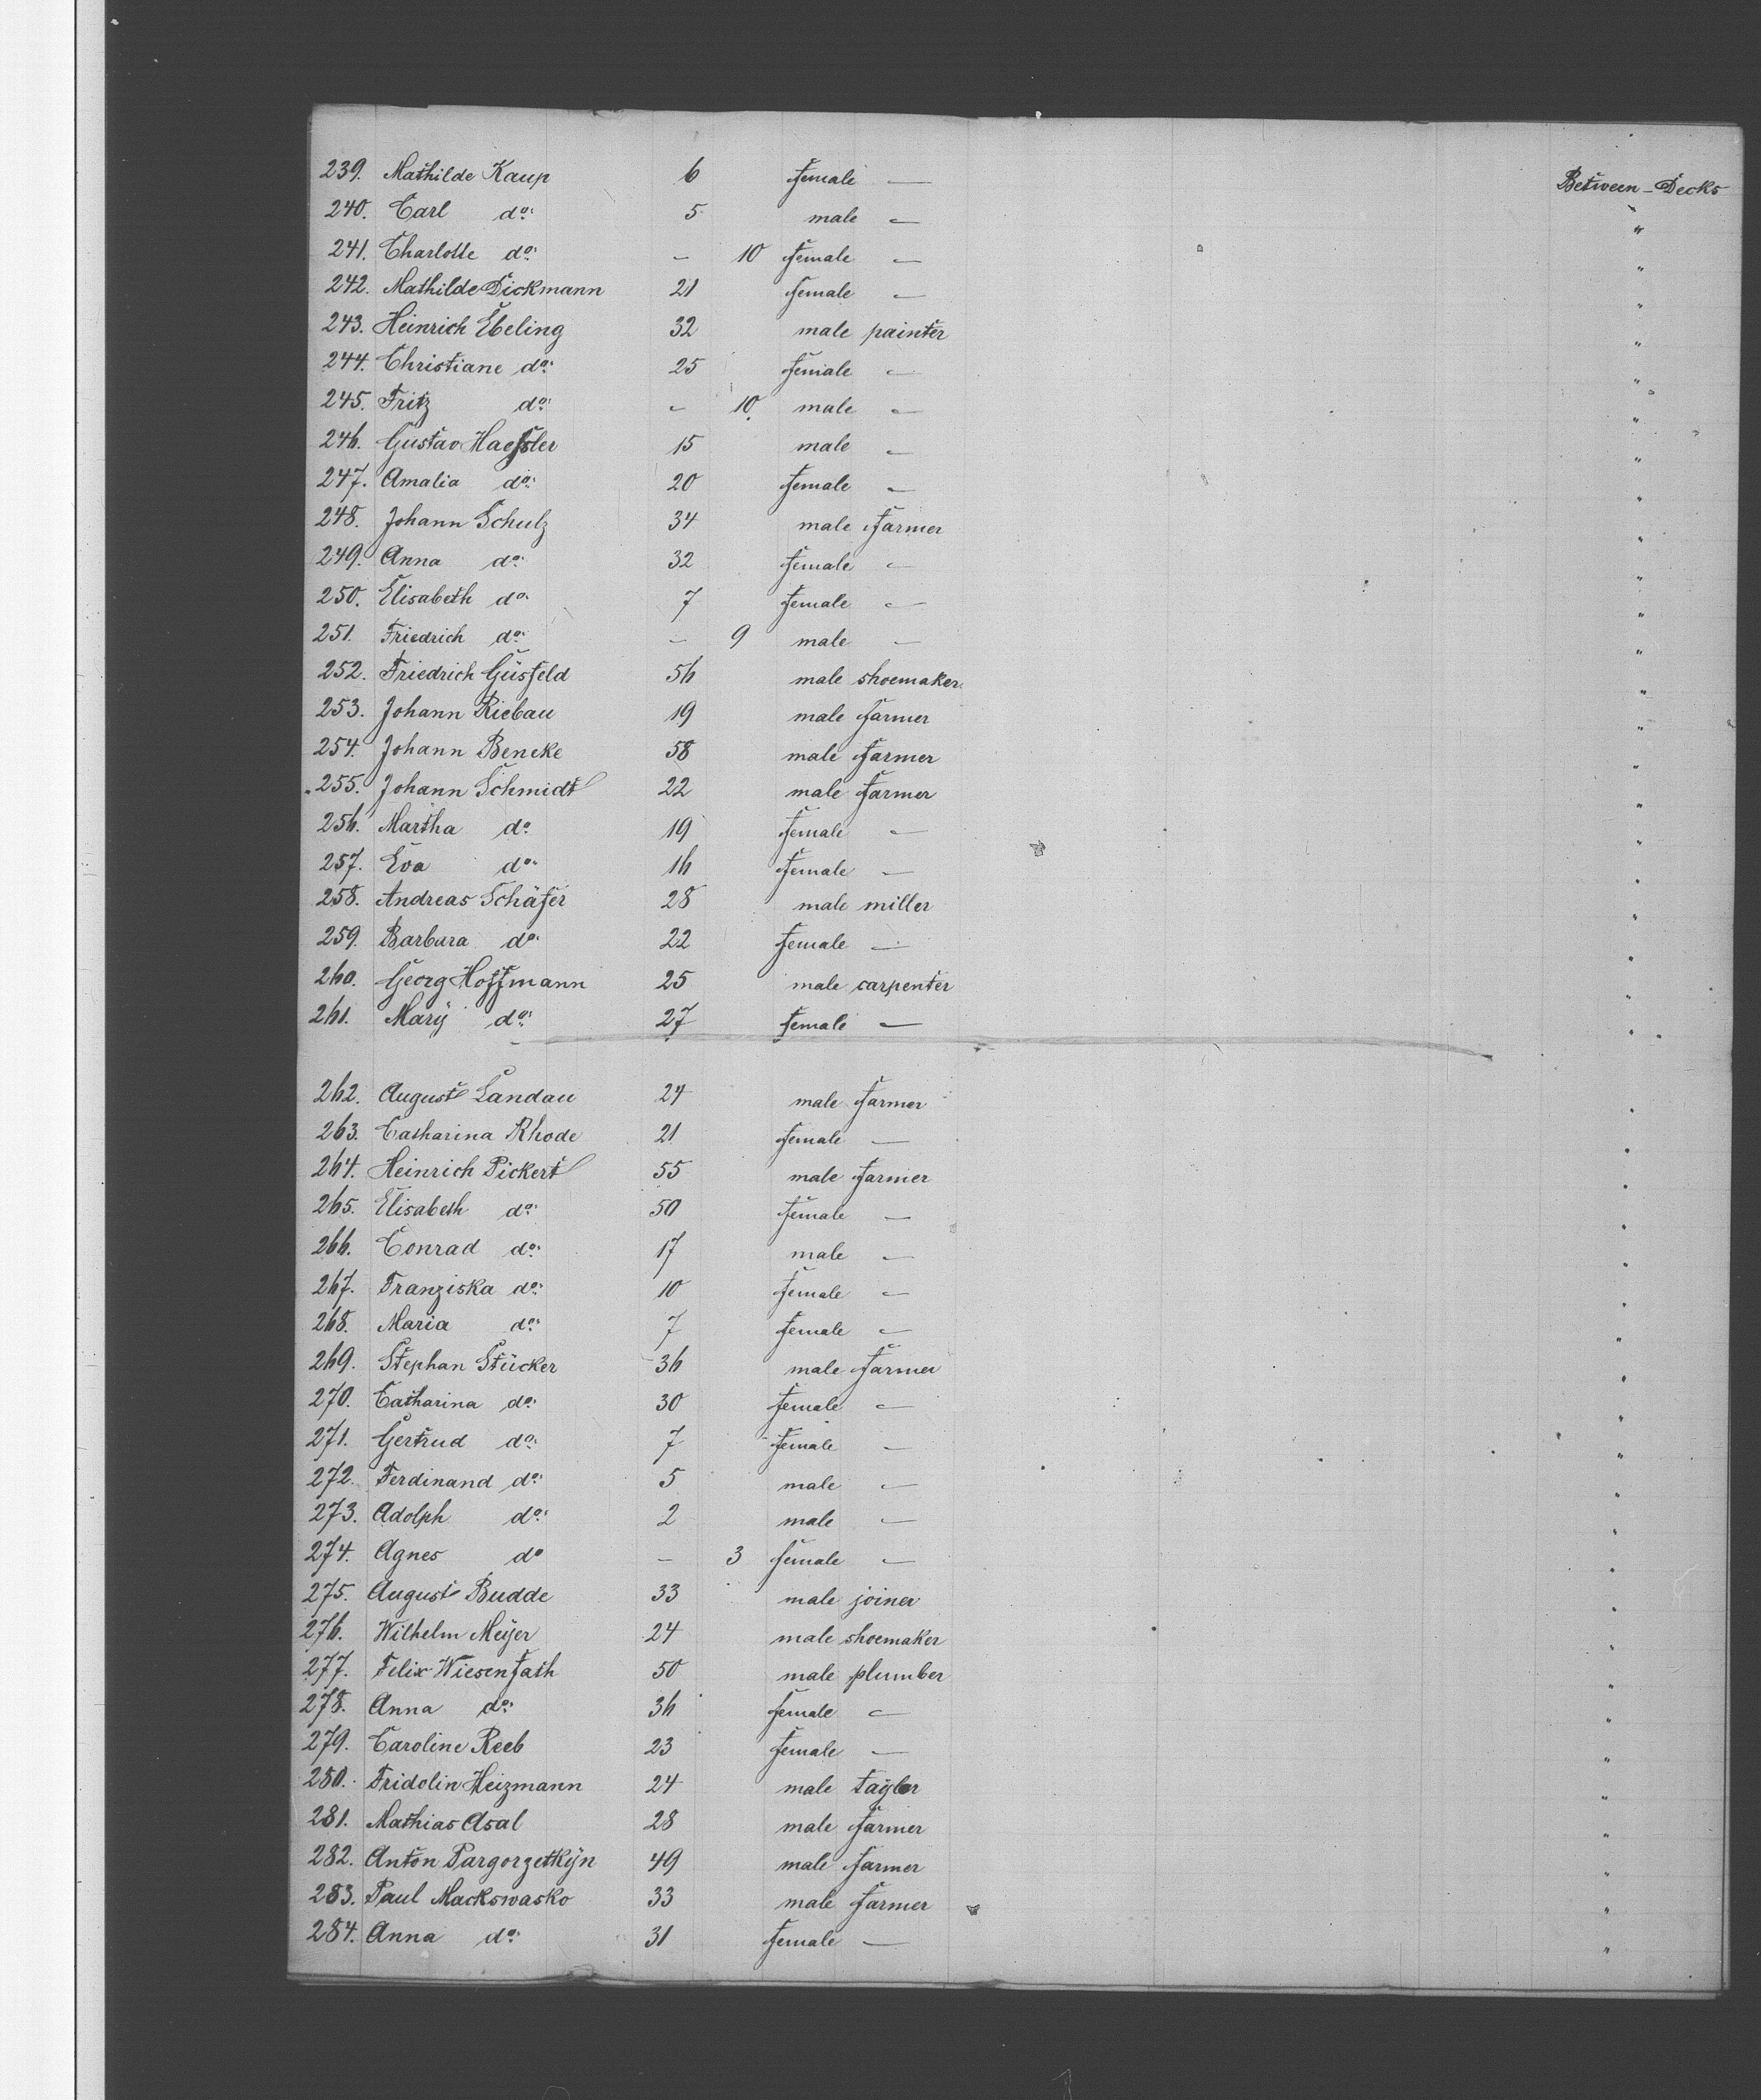 239. Mathilde Kaup 6 female — Between-Decks
240. Carl do. 5 male — "
241. Charlotte do. – 10 female — "
242. Mathilde Dickmann 21 female — "
243. Heinrich Ebeling 32 male painter "
244. Christiane do. 25 female — "
245. Fritz do. – 10 male — "
246. Gustav Haeßler 15 male — "
247. Amalia do. 20 female — "
248. Johann Schulz 34 male farmer "
249. Anna do. 32 female — "
250. Elisabeth do. 7 female — "
251. Friedrich do. – 9 male — "
252. Friedrich Güsfeld 56 male shoemaker "
253. Johann Riebau 19 male farmer "
254. Johann Beneke 58 male farmer "
255. Johann Schmidt 22 male farmer "
256. Martha do. 19 female — "
257. Eva do. 16 female — "
258. Andreas Schäfer 28 male miller "
259. Barbara do. 22 female — "
260. Georg Hoffmann 25 male carpenter "
261. Marÿ do. 27 female — "
262. August Landau 24 male farmer "
263. Catharina Rhode 21 female — "
264. Heinrich Pickert 55 male farmer "
265. Elisabeth do. 50 female — "
266. Conrad do. 17 male — "
267. Franziska do. 10 female — "
268. Maria do. 7 female — "
269. Stephan Stücker 36 male farmer "
270. Catharina do. 30 female — "
271. Gertrud do. 7 female — "
272. Ferdinand do. 5 male — "
273. Adolph do. 2 male — "
274. Agnes do – 3 female — "
275. August Budde 33 male joiner "
276. Wilhelm Meÿer 24 male shoemaker "
277. Felix Wiesenfath 50 male plumber "
278. Anna do. 36 female — "
279. Caroline Reeb 23 female — "
280. Fridolin Heizmann 24 male taÿlor "
281. Mathias Asal 28 male farmer "
282. Anton Pargorzetkÿn 49 male farmer "
283. Paul Mackswasko 33 male farmer "
284. Anna do. 31 female — "